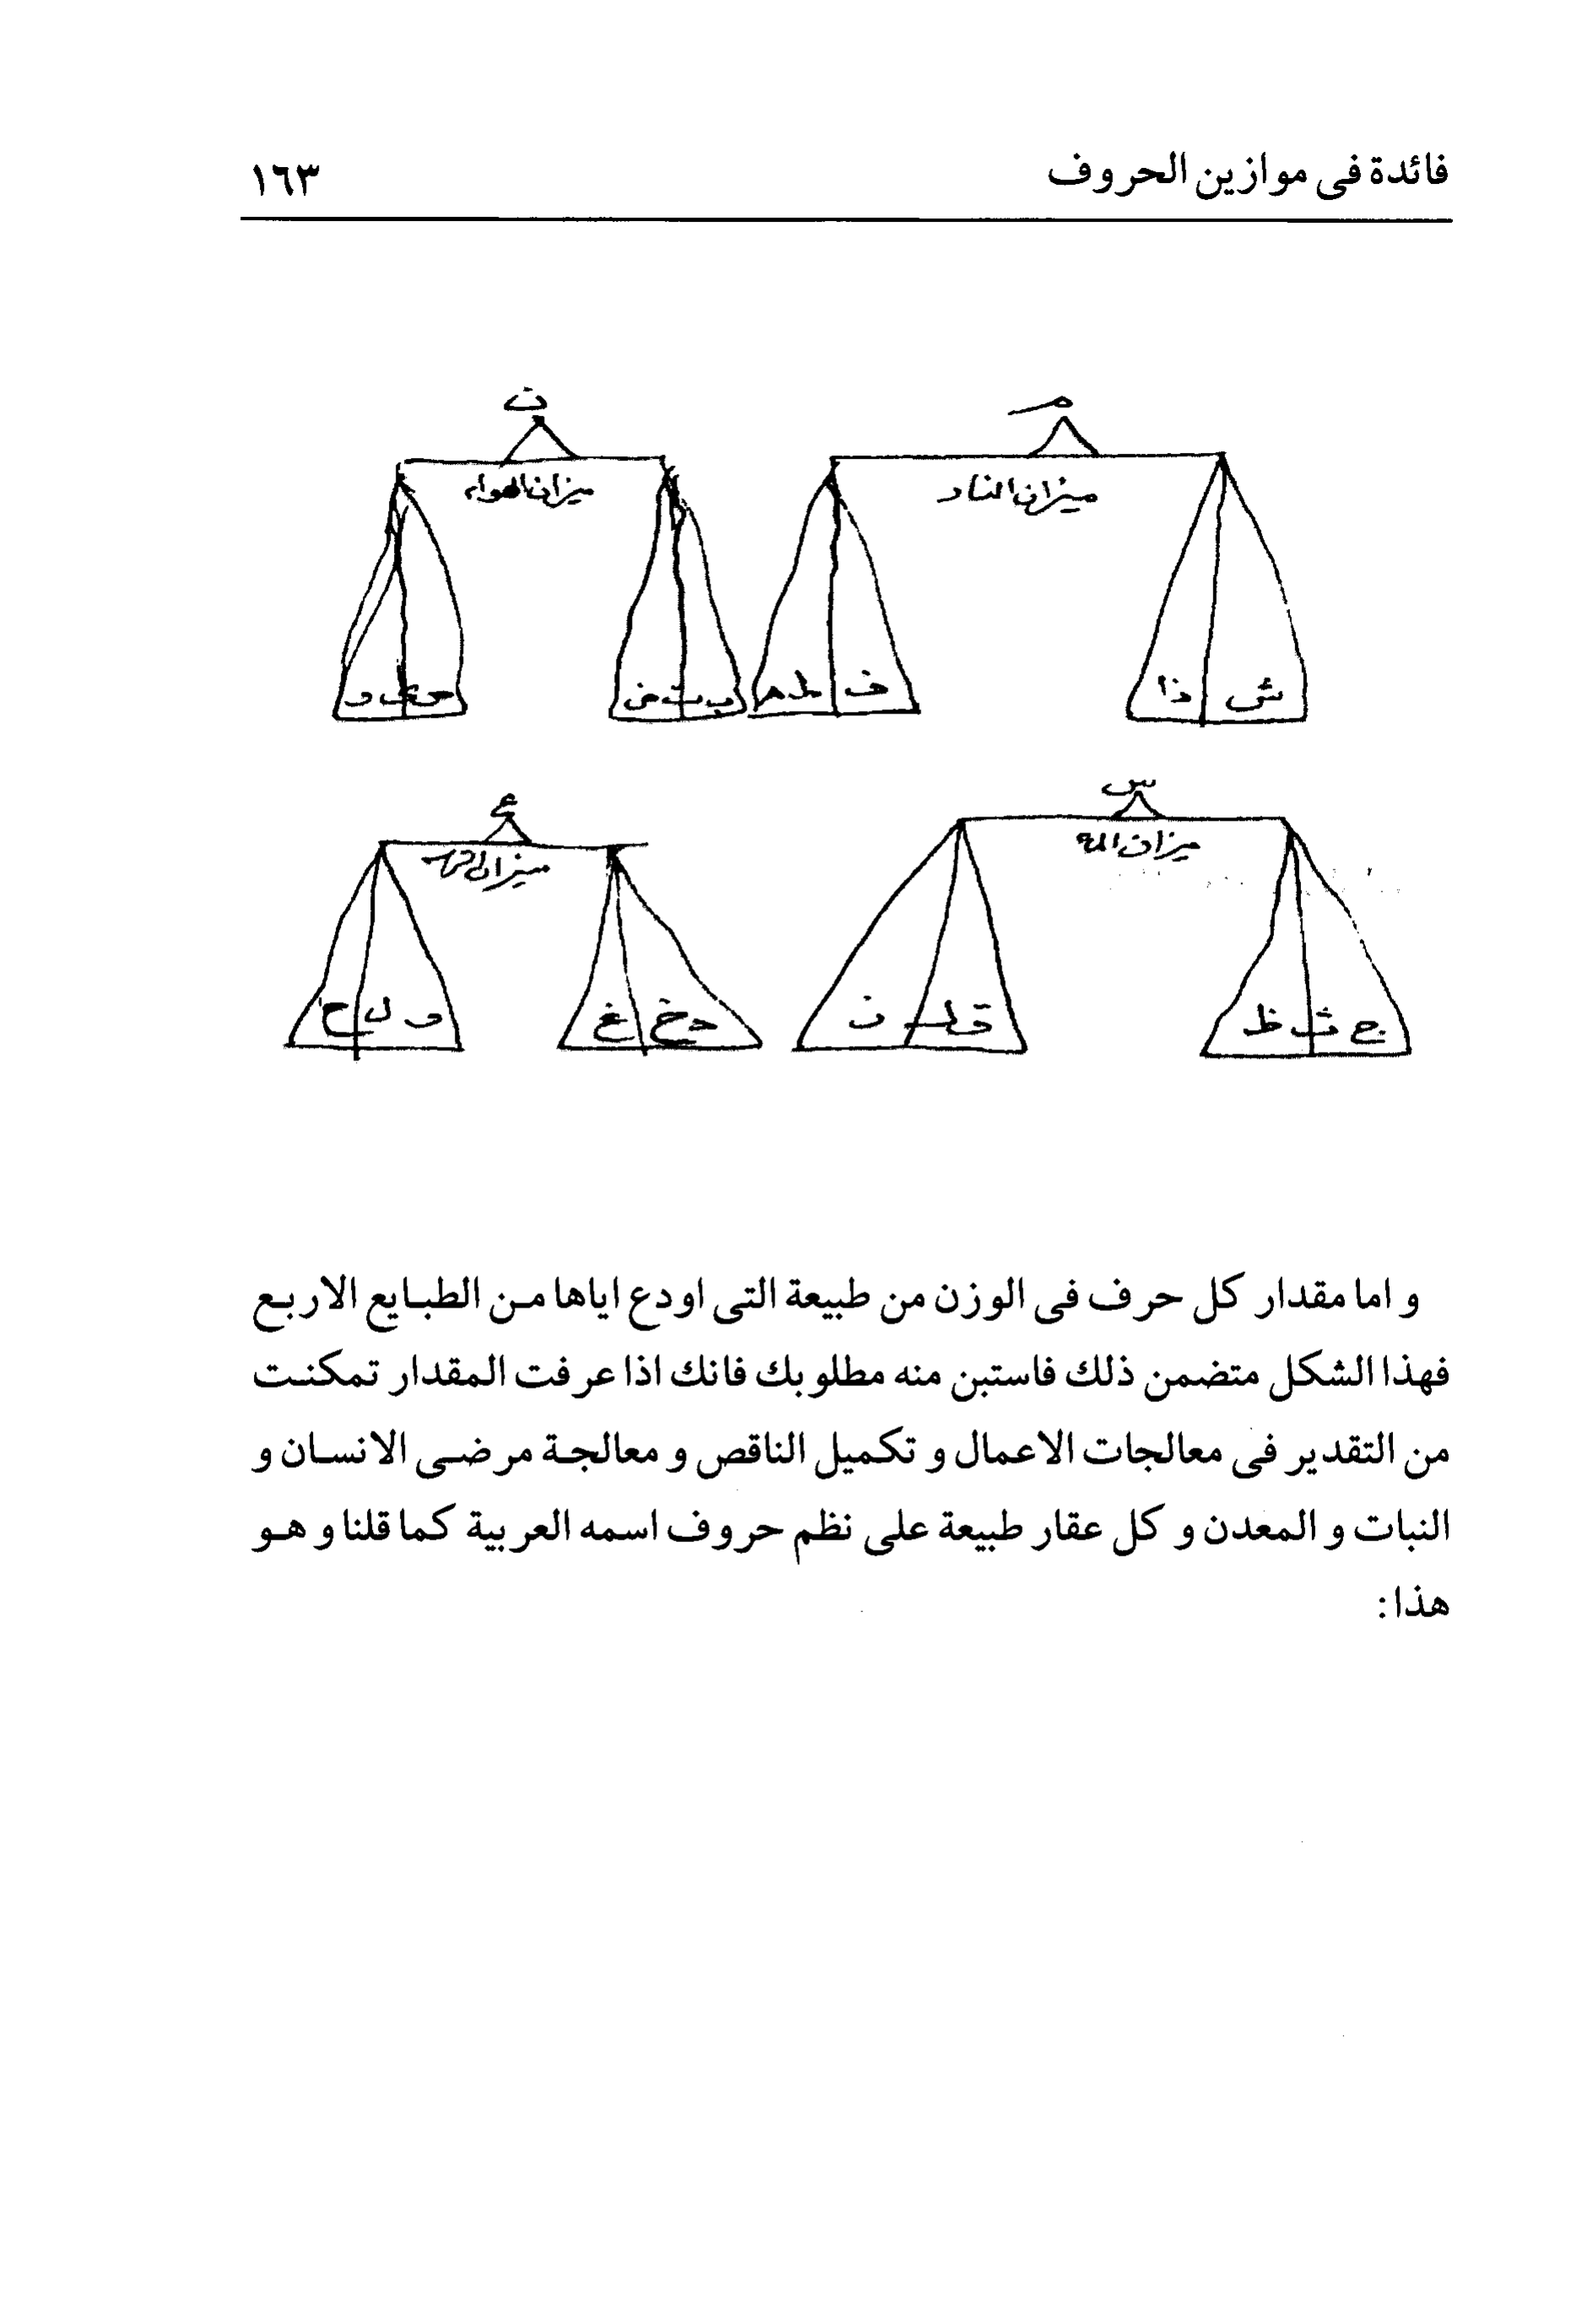 فائدة فى موازين الحروف ١٦٣
مـ
ن
ميزان النار
ميزان الهواء
ش ذا
ف ط ه
ب ت ض
و
س
ع
ميزان الماء
ميزان
ج ث ظ
ق ز
د خ غ
ر ل ح
و اما مقدار كل حرف فى الوزن من طبيعة التى اودع اياها من الطبايع الاربع
فهذا الشكل متضمن ذلك فاستبن منه مطلوبك فانك اذا عرفت المقدار تمكنت
من التقدير فى معالجات الاعمال و تكميل الناقص و معالجة مرضى الانسان و
النبات و المعدن و كل عقار طبيعة على نظم حروف اسمه العربية كما قلنا و هو
هذا: